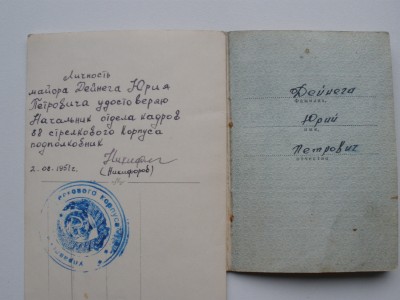 Личность
майора Дейнега Юрия
Петровича удостоверяю
Начальник отдела кадров
88 стрелкового корпуса
подполковник
(Никифоров)
2.08.1951г.
лкового корпуса
Дейнега
фамилия,
Юрий
имя,
Петрович
отчество